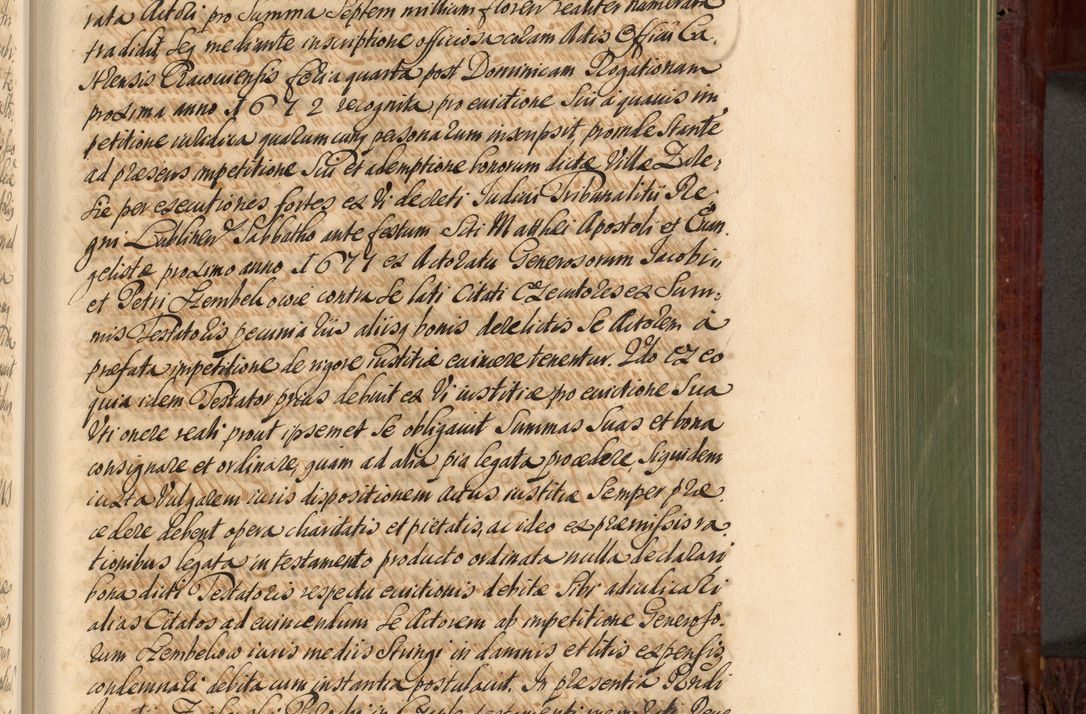 rata Actori pro Summa Septem millium floren realiter numerata
tradidit, seq mediante inscriptione officiosa coram Actis Officii Ca
strensis Cracoviensis feria quarta post Dominicam Rogationum
proxima anno 1672 recognita pro evictione Sui a quavis im
petitione iuridica quarumcunq personarum inscripsit proinde Stante
ad praesens impetitione Sui et ademptione bonorum dictae Villae Zele,
sie per executiones fortes ex Vi decreti Iudicii Tribunalitii Re
gni Lublinen Sabbatho ante festum Scti Matthei Apostoli et Evan
gelistae proximo anno 1677 ex Actoratu Generosorum Iacobi
et Petri Szembekowie contra Se lati Citati Executores ex Sum
mis Testatoris pecuniariis aliisq bonis derelictis Se Actorem a
praefata impetitione de rigore iustitiae evincere tenentur. 2do Ex eo
quia idem Testator prius debuit ex Vi iustitiae pro evictione Sua
Uti onere reali prout ipsemet Se obligavit Summas Suas et bona
consignare et ordinare, quam ad alia pia legata procedere Siquidem
iuxta Vulgarem iuris dispositionem Actus iustitiae Semper prae
cedere debent opera charitatis et pietatis, ac ideo ex praemissis ra
tionibus legata in testamento producto ordinata nulla declarari
bona dicti Testatoris respectu evictionis debitae Sibi adiudicari
alias Citatos ad evincendum Se Actorem ab impetitione Generoso
rum Szembekow iuris mediis Stringi in damnis et litis expensis
condemnari debita cum instantia postulavit. In praesentia Rndi